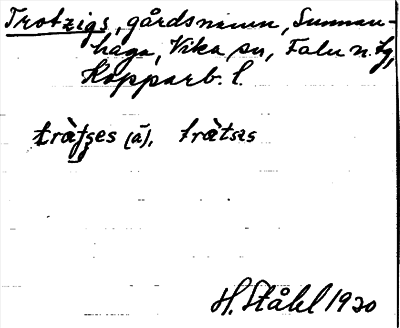 Trotzigs, gårdsnamn, Sunnan-
haga, Vika sn, Falu n. tg,
Kopparb. l.
tràtses (ā), tràtsas
H. Ståhl 1920